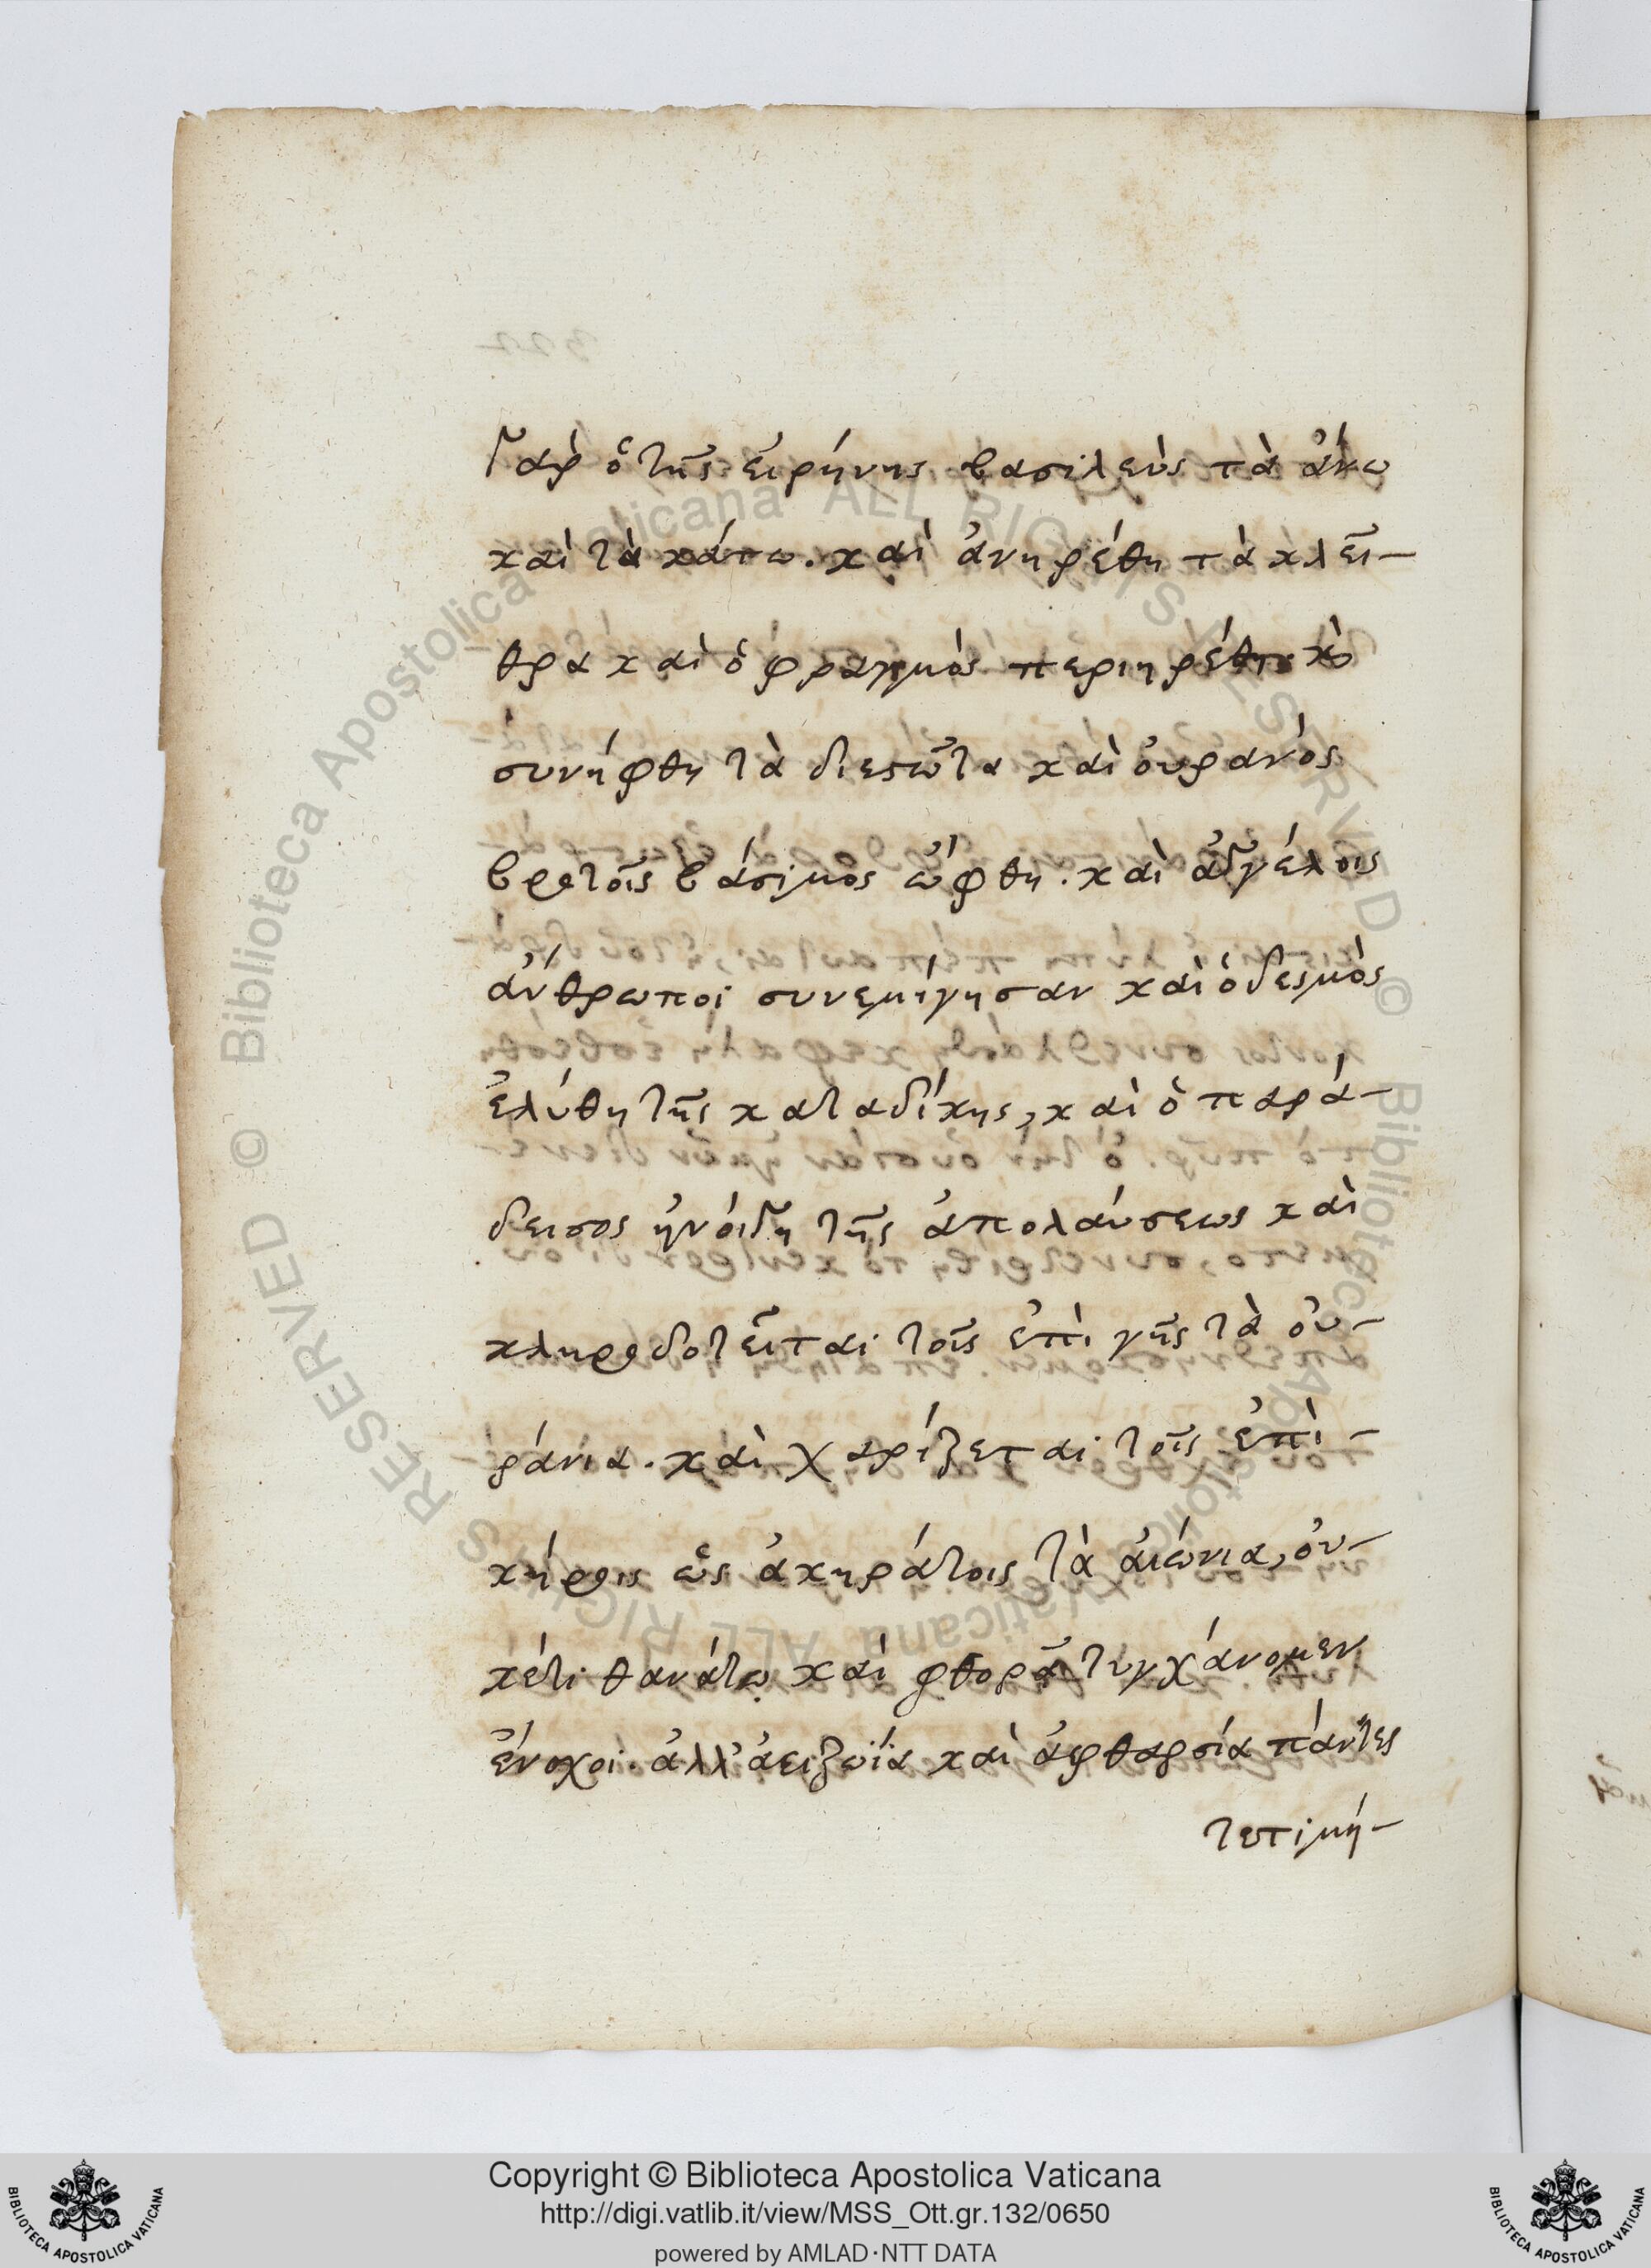 γὰρ ὁ τῆς εἰρήνης βασιλεὺς τὰ ἄνω
καὶ τὰ κάτω. καὶ ἀνηρέθη τὰ κλεῖ-
θρα καὶ ὁ φραγμὸς περιηρέθη. κ(αὶ)
συνήφθη τὰ διεστῶτα καὶ οὐρανὸς
βροτοῖς βάσιμος ὤφθη. καὶ ἀγγέλοις
ἄνθρωποι συνεμίγησαν καὶ ὁ δεσμὸς
ἐλύθη τῆς καταδίκης, καὶ ὁ παρά-
δεισος ἠνοίγη τῆς ἀπολαύσεως καὶ
κληροδοτεῖται τοῖς ἐπὶ γῆς τὰ οὐ-
ράνια. καὶ χαρίζεται τοῖς ἐπι-
κήροις ὡς ἀκηράτοις τὰ αἰώνια, οὐ-
κέτι θανάτω καὶ φθορᾶ τυγχάνομεν
ἔνοχοι. ἀλλ' ἀειζωΐα καὶ ἀφθαρσία πάντες
τετιμή-
Copyright © Biblioteca Apostolica Vaticana
http://digi.vatlib.it/view/MSS_Ott.gr.132/0650
powered by AMLAD·NTT DATA
BIBLIOTECA APOSTOLICA VATICANA
BIBLIOTECA APOSTOLICA VATICANA